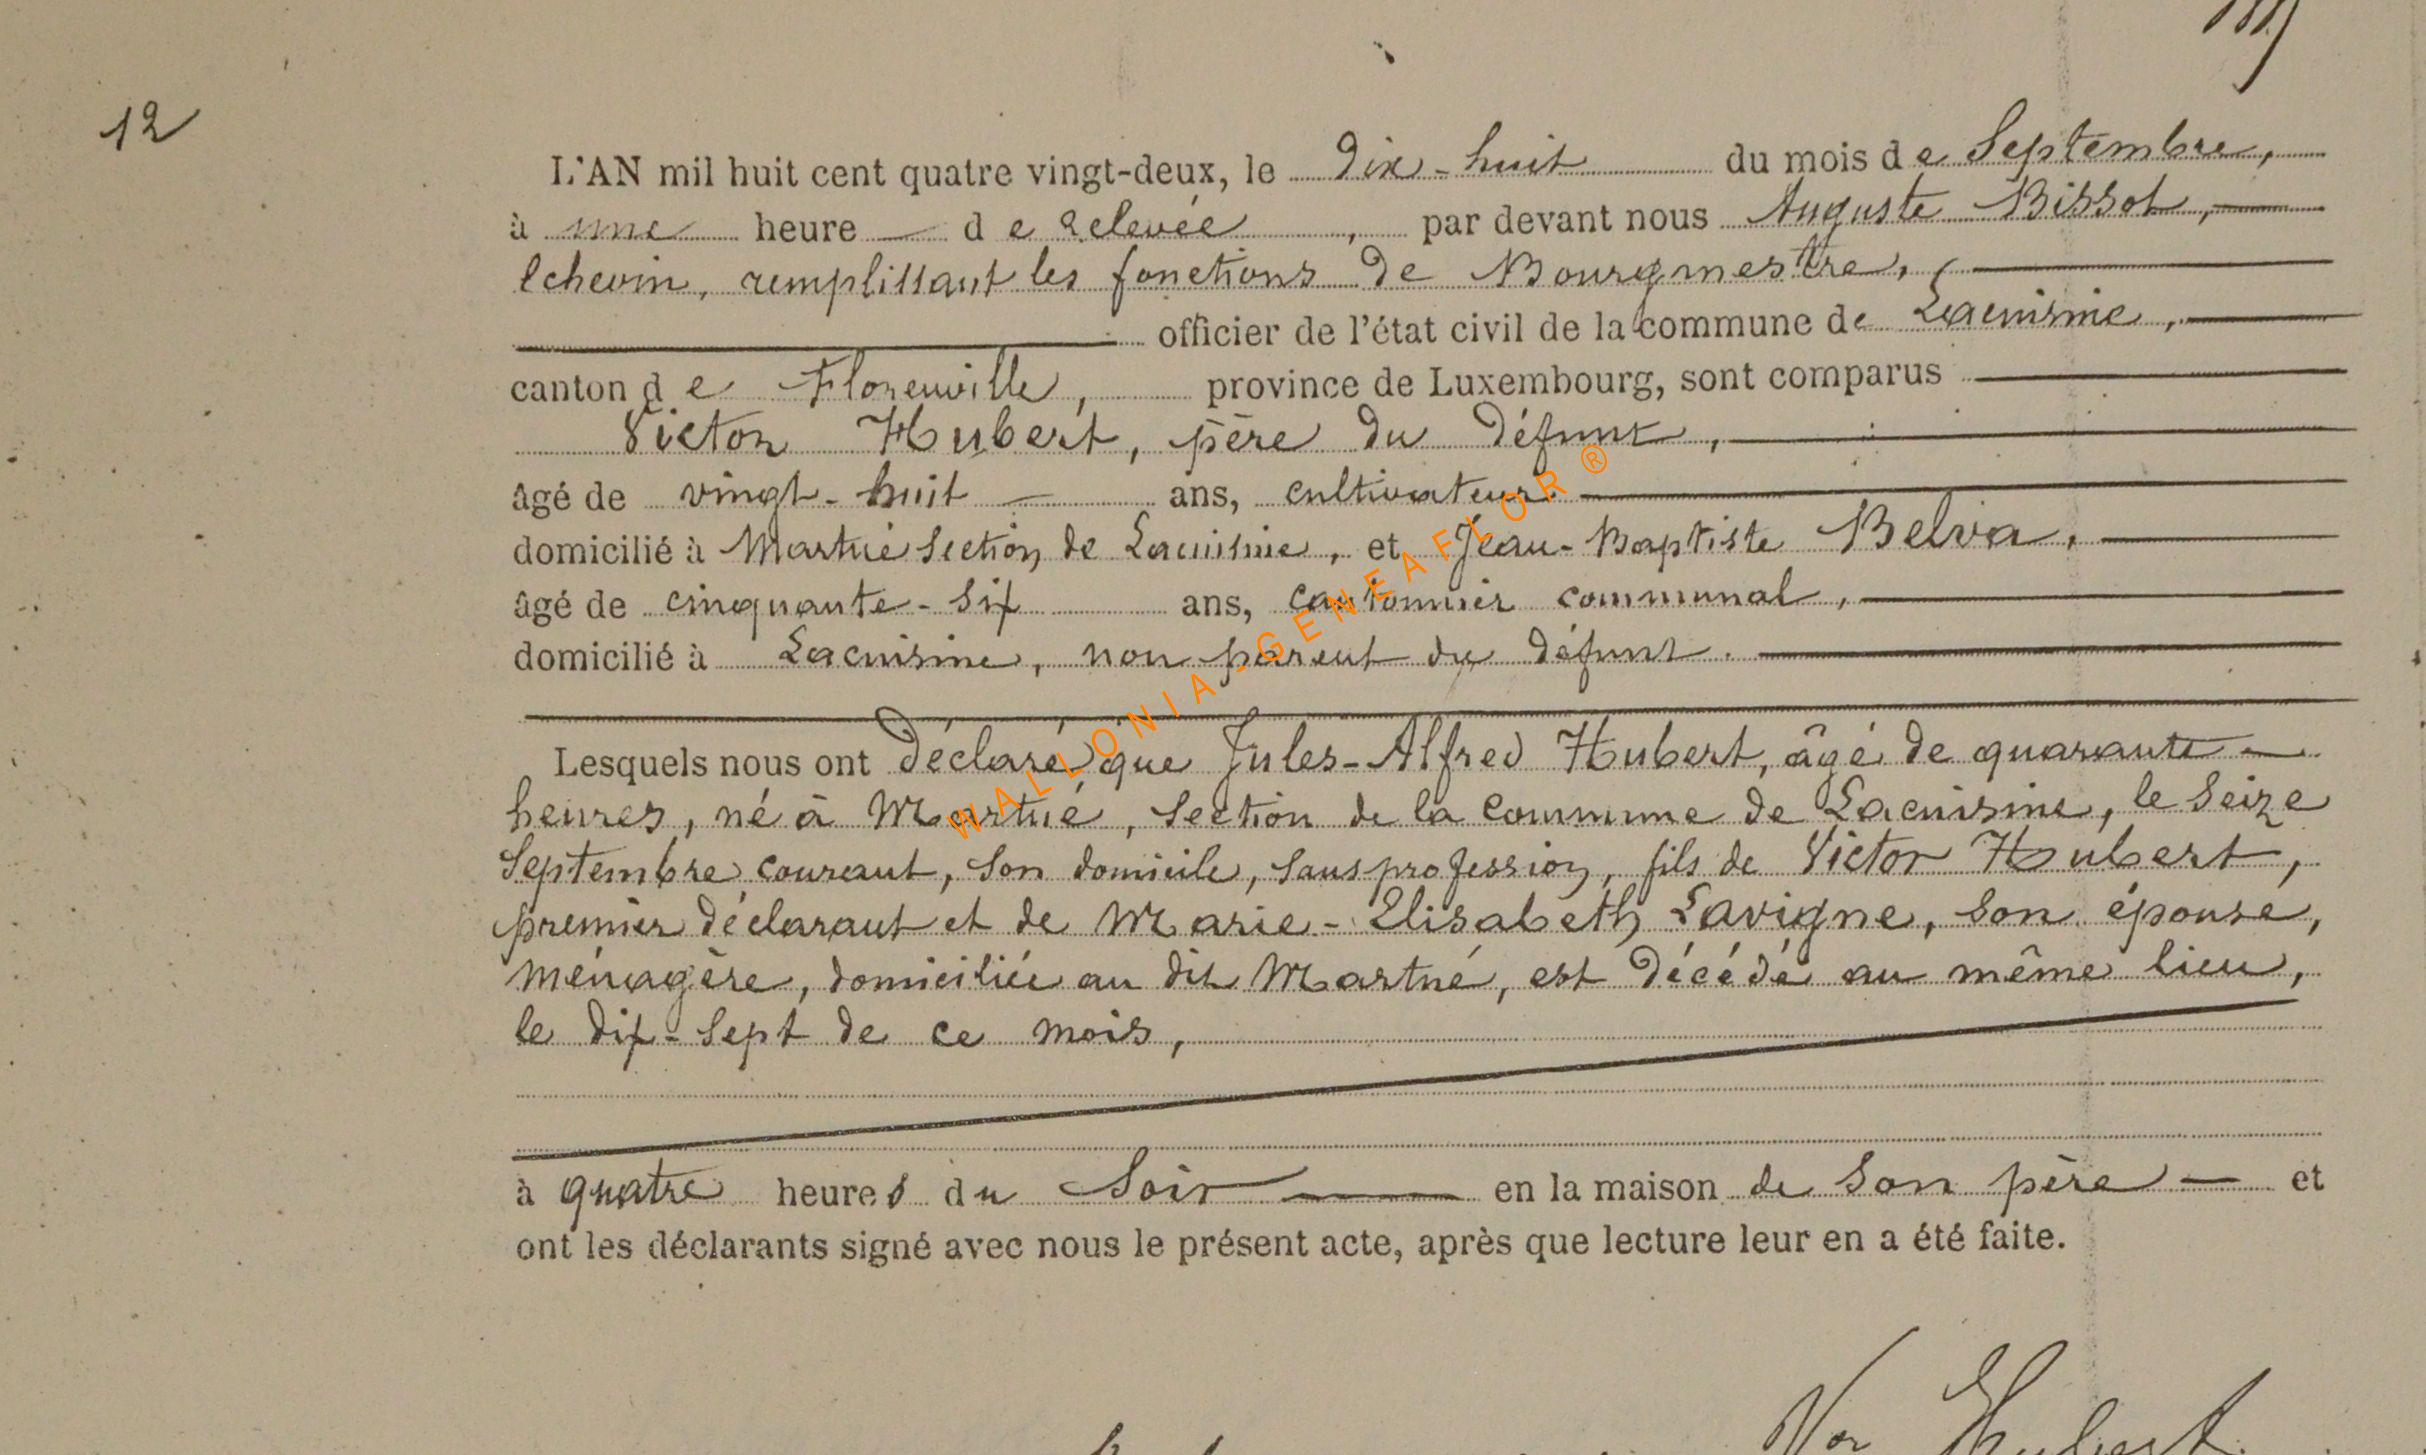 12
L'AN mil huit cent quatre vingt-deux, le Dix-huit du mois de Septembre,
à une heure de relevée, par devant nous Auguste Bissot,
Echevin, remplissant les fonctions de Bourgmestre,
officier de l'état civil de la commune de Lacuisine,
canton de Florenville, province de Luxembourg, sont comparus
Victor Hubert, père du défunt,
âgé de vingt-huit ans, cultivateur,
domicilié à Martué section de Lacuisine, et Jean-Baptiste Belva,
âgé de cinquante-six ans, cantonnier communal,
domicilié à Lacuisine, non parent du défunt.
Lesquels nous ont déclaré que Jules-Alfred Hubert, âgé de quarante
heures, né à Martué, section de la commune de Lacuisine, le seize
Septembre courant, son domicile, sans profession, fils de Victor Hubert,
premier déclarant et de Marie-Elisabeth Lavigne, son épouse,
ménagère, domiciliée au dit Martué, est décédé au même lieu,
le dix-sept de ce mois,
à quatre heures du soir en la maison de son père et
ont les déclarants signé avec nous le présent acte, après que lecture leur en a été faite.
Vor Hubert
WALLONIA-GENEAFLOR ®